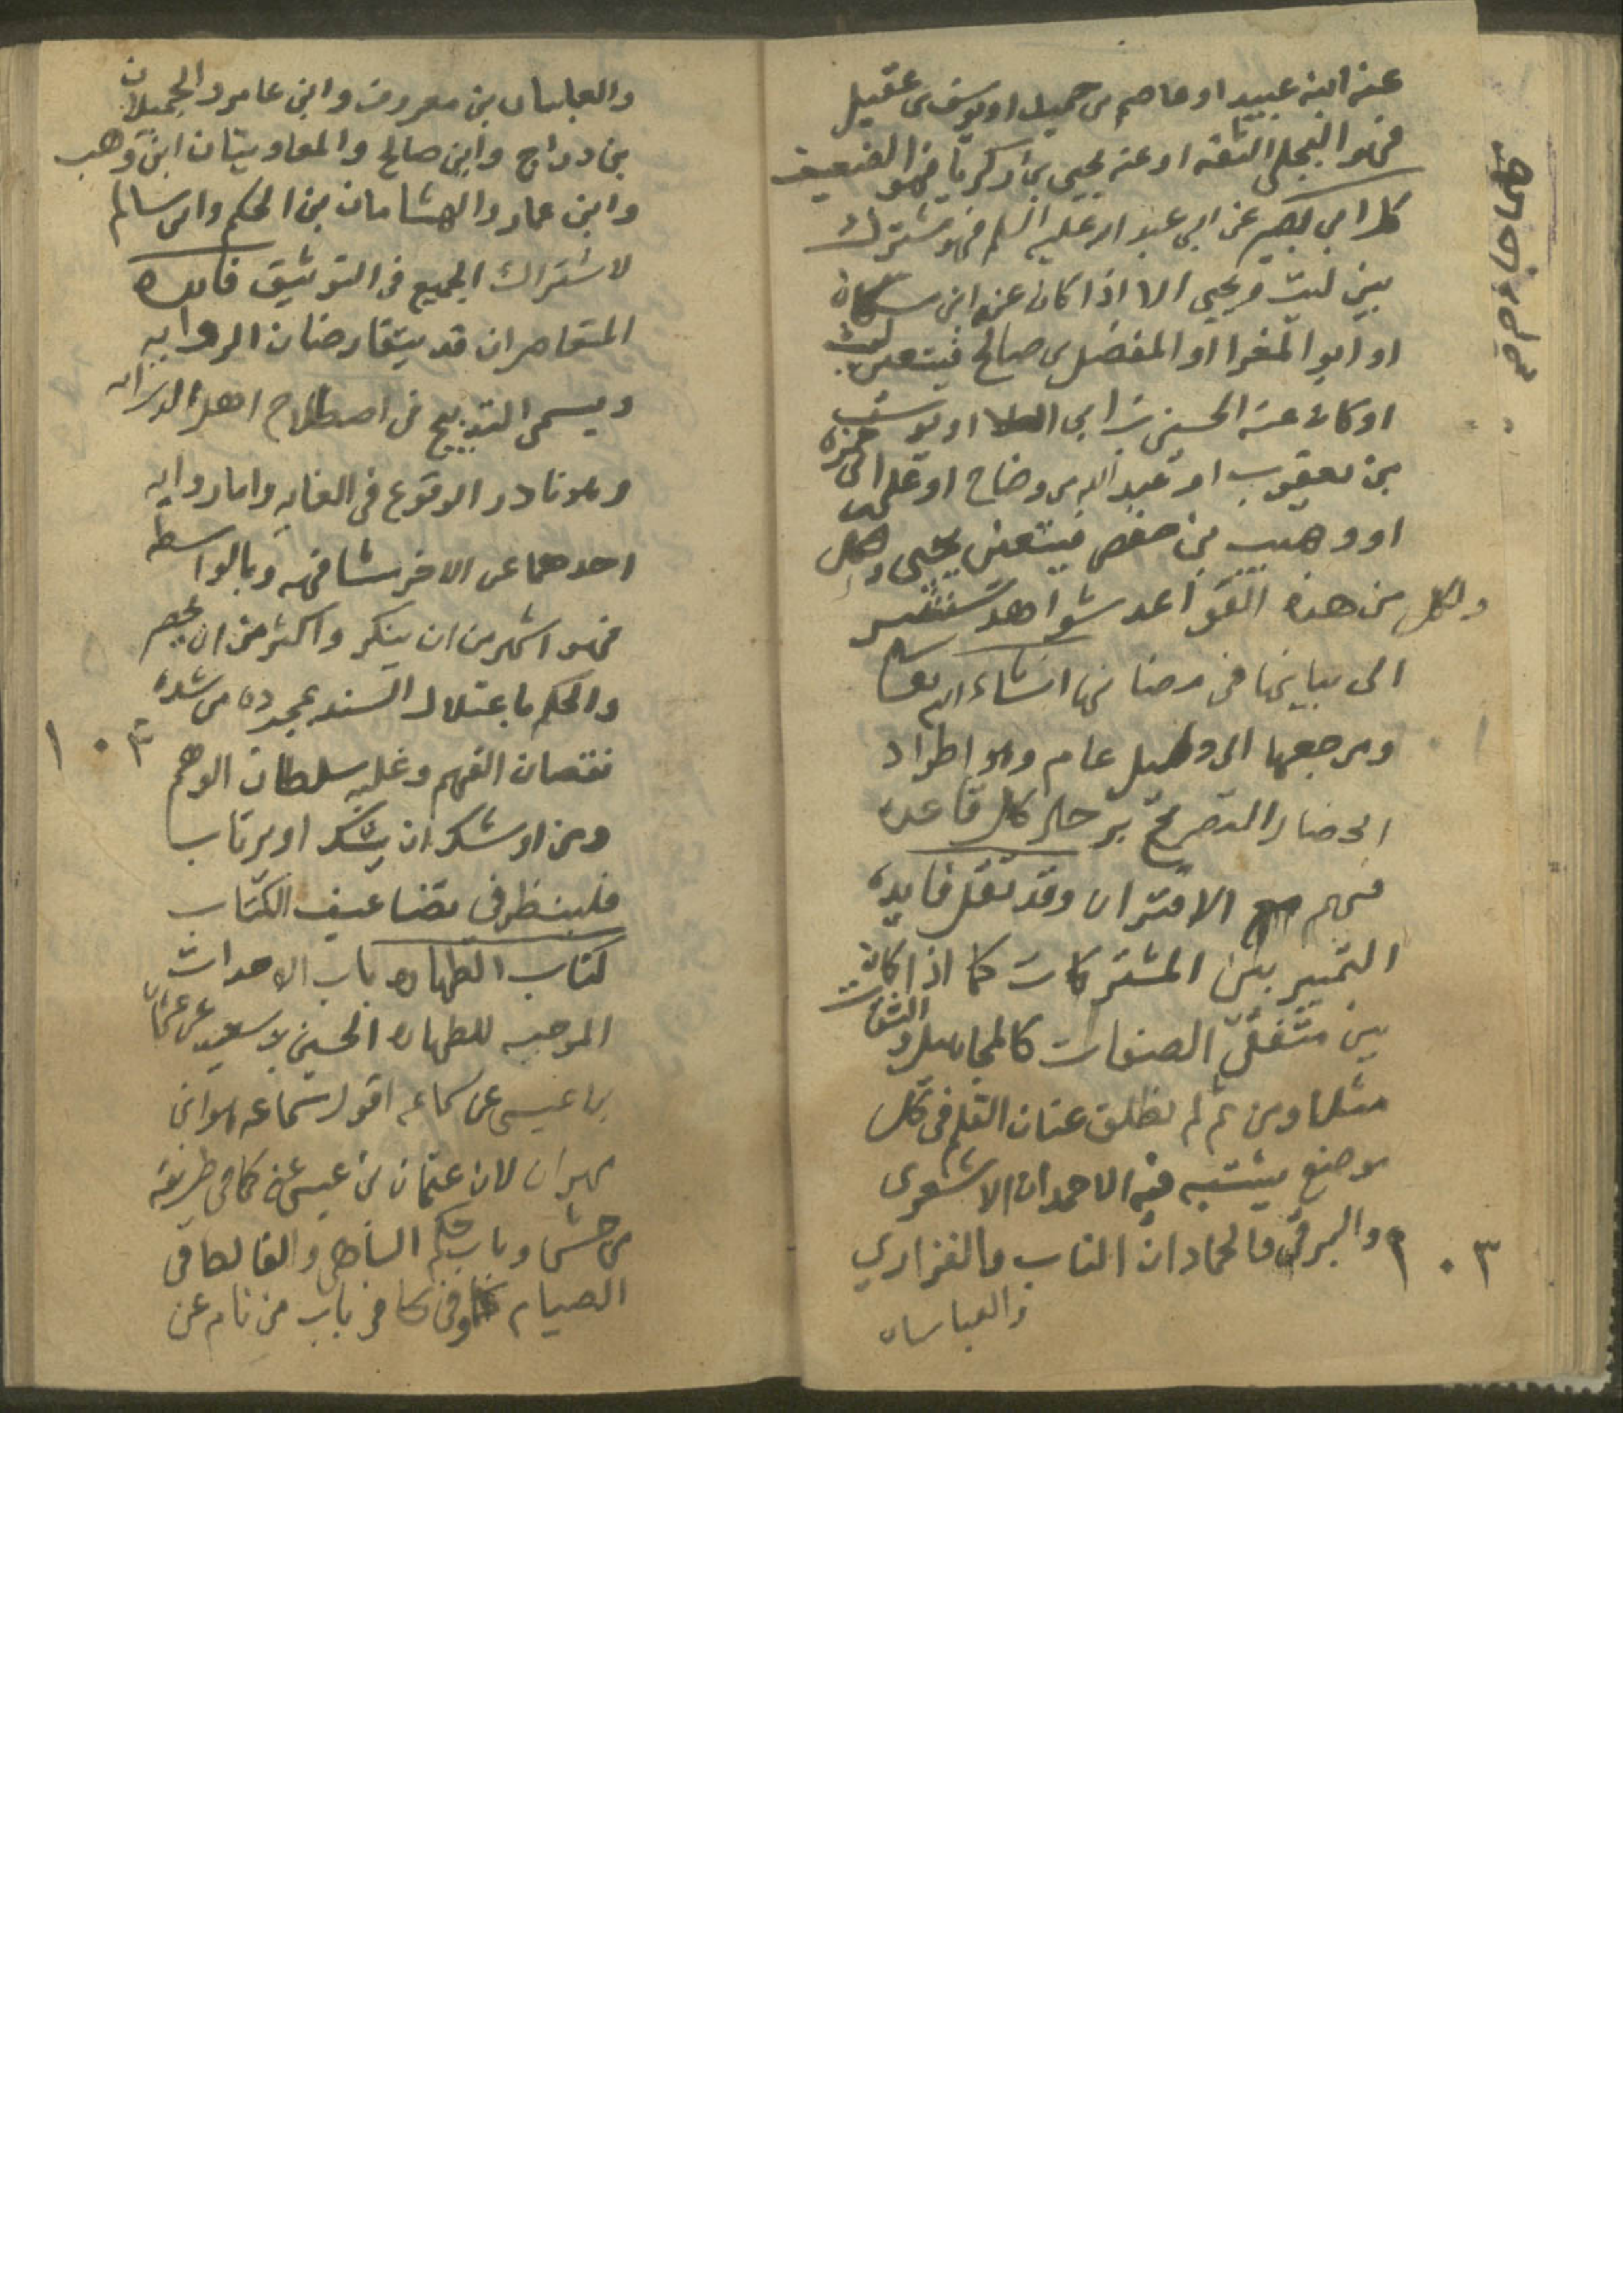 عنه ابنه عبيد او عاصم بن حميد او يوسف بن عقيل
فهو البجلي الثقه او عنه يحيى بن زكريا فهو الضعيف
كل ابي بصير عن ابي عبد الله عليه السلم فهو مشترك
بين ليث ويحيى الا اذا كان عنه ابن مسكان
او ابو المغرا او المفضل بن صالح فيتعين ليث
او كان عنه الحسين بن ابي العلا او يوسف
بن يعقوب او عبد الله بن وضاح او علي بن ابي حمزه
او وهيب بن حفص فيتعين يحيى
ولكل من هذه القواعد شواهد ستشير
الى بيانها في مضانها انشاء الله تعالى
ومرجعها الى دليل عام وهو اطراد
فيهم الاقتران وقد تقل فايدة
التمييز بين المشتركات كما اذا كانت
بين متفقي الصفات كالمجاهيل والثقات
مثلا ومن ثم لم نطلق عنان القلم في كل
موضع يشتبه فيه الاحمدان الاشعري
والبرقي والحمادان الناب والفزاري
والعباسان
١٠٣
والعباسان بن معروف وابن عامر والجميلان
بن دراج وابن صالح والمعاويتان ابن وهب
وابن عمار والهشامان بن الحكم وابن سالم
لاشتراك الجميع في التوثيق فائده
المتعاصران قد يتقارضان الروايه
ويسمى التدبيج في اصطلاح اهل الدرايه
وهو نادر الوقوع في الغايه واما روايه
احدهما عن الاخر مشافهه وبالواسطه
فهو اشهر من ان ينكر واكثر من ان يحصر
والحكم باعتلال السند بمجرده من شدة
نقصان الفهم وغلبه سلطان الوهم
ومن اوشك ان يشك او يرتاب
فلينظر في تضاعيف الكتاب
كتاب الطهاره باب الاحداث
الموجبه للطهاره الحسين بن سعيد عن عثمان
بن عيسى عن سماعه اقول سماعه هو ابن
مهران لان عثمان بن عيسى عنه كما في طريقه
الصيام وفي كا في باب من نام عن
١٠٣